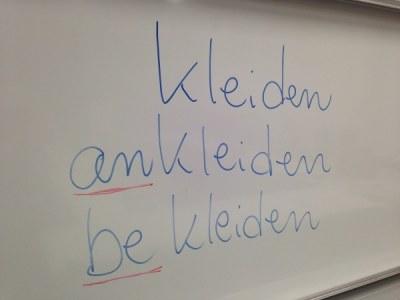 kleiden
ankleiden
be kleiden